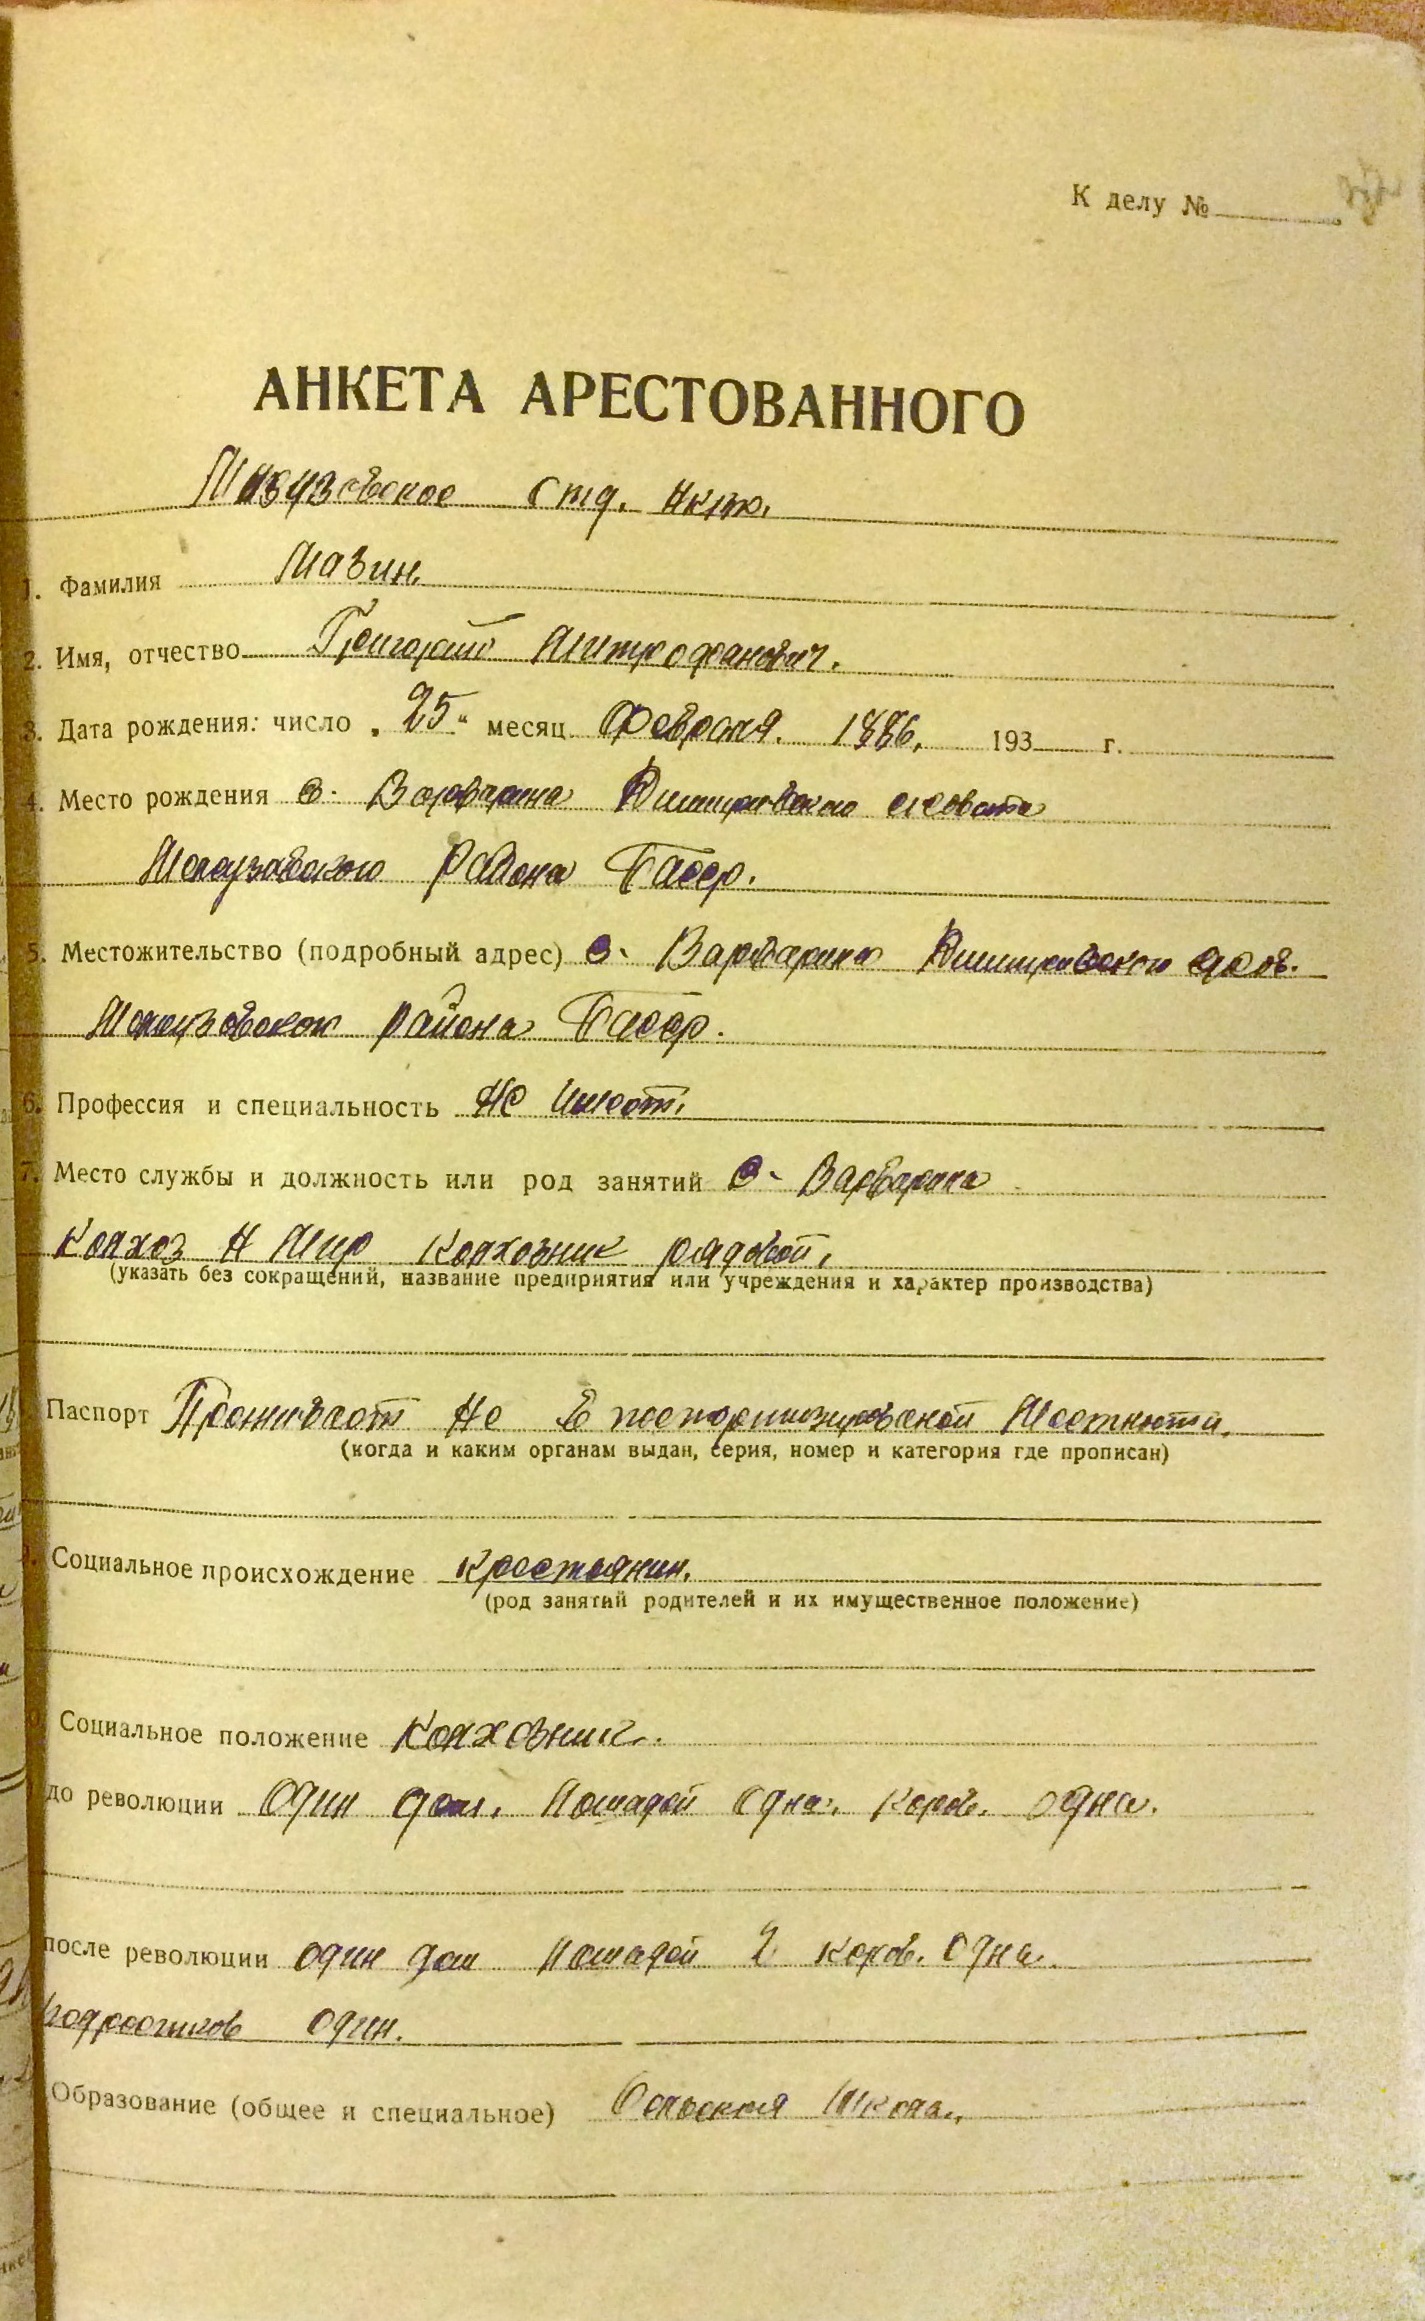 К делу №
АНКЕТА АРЕСТОВАННОГО
отд. Нквд.
1. Фамилия Мазин.
2. Имя, отчество Григорий Митрофанович.
3. Дата рождения: число „25“ месяц Февраля. 1886. 193 г.
4. Место рождения с. Варварина Дмитровского с/совета
Мелеузовского района Басср.
5. Местожительство (подробный адрес) с. Варварино Дмитровского
Мелеузовского района Басср.
6. Профессия и специальность не имеет.
7. Место службы и должность или род занятий с. Варварина
колхоз Н Мир колхозник рядовой.
(указать без сокращений, название предприятия или учреждения и характер производства)
Паспорт Проживает не в паспортизированной местности.
(когда и каким органам выдан, серия, номер и категория где прописан)
Социальное происхождение крестьянин.
(род занятий родителей и их имущественное положение)
Социальное положение Колхозник.
до революции один дом. лошадей одна. коров. одна.
после революции один дом лошадей 2 коров. одна.
подростков один.
Образование (общее и специальное) Сельская школа.